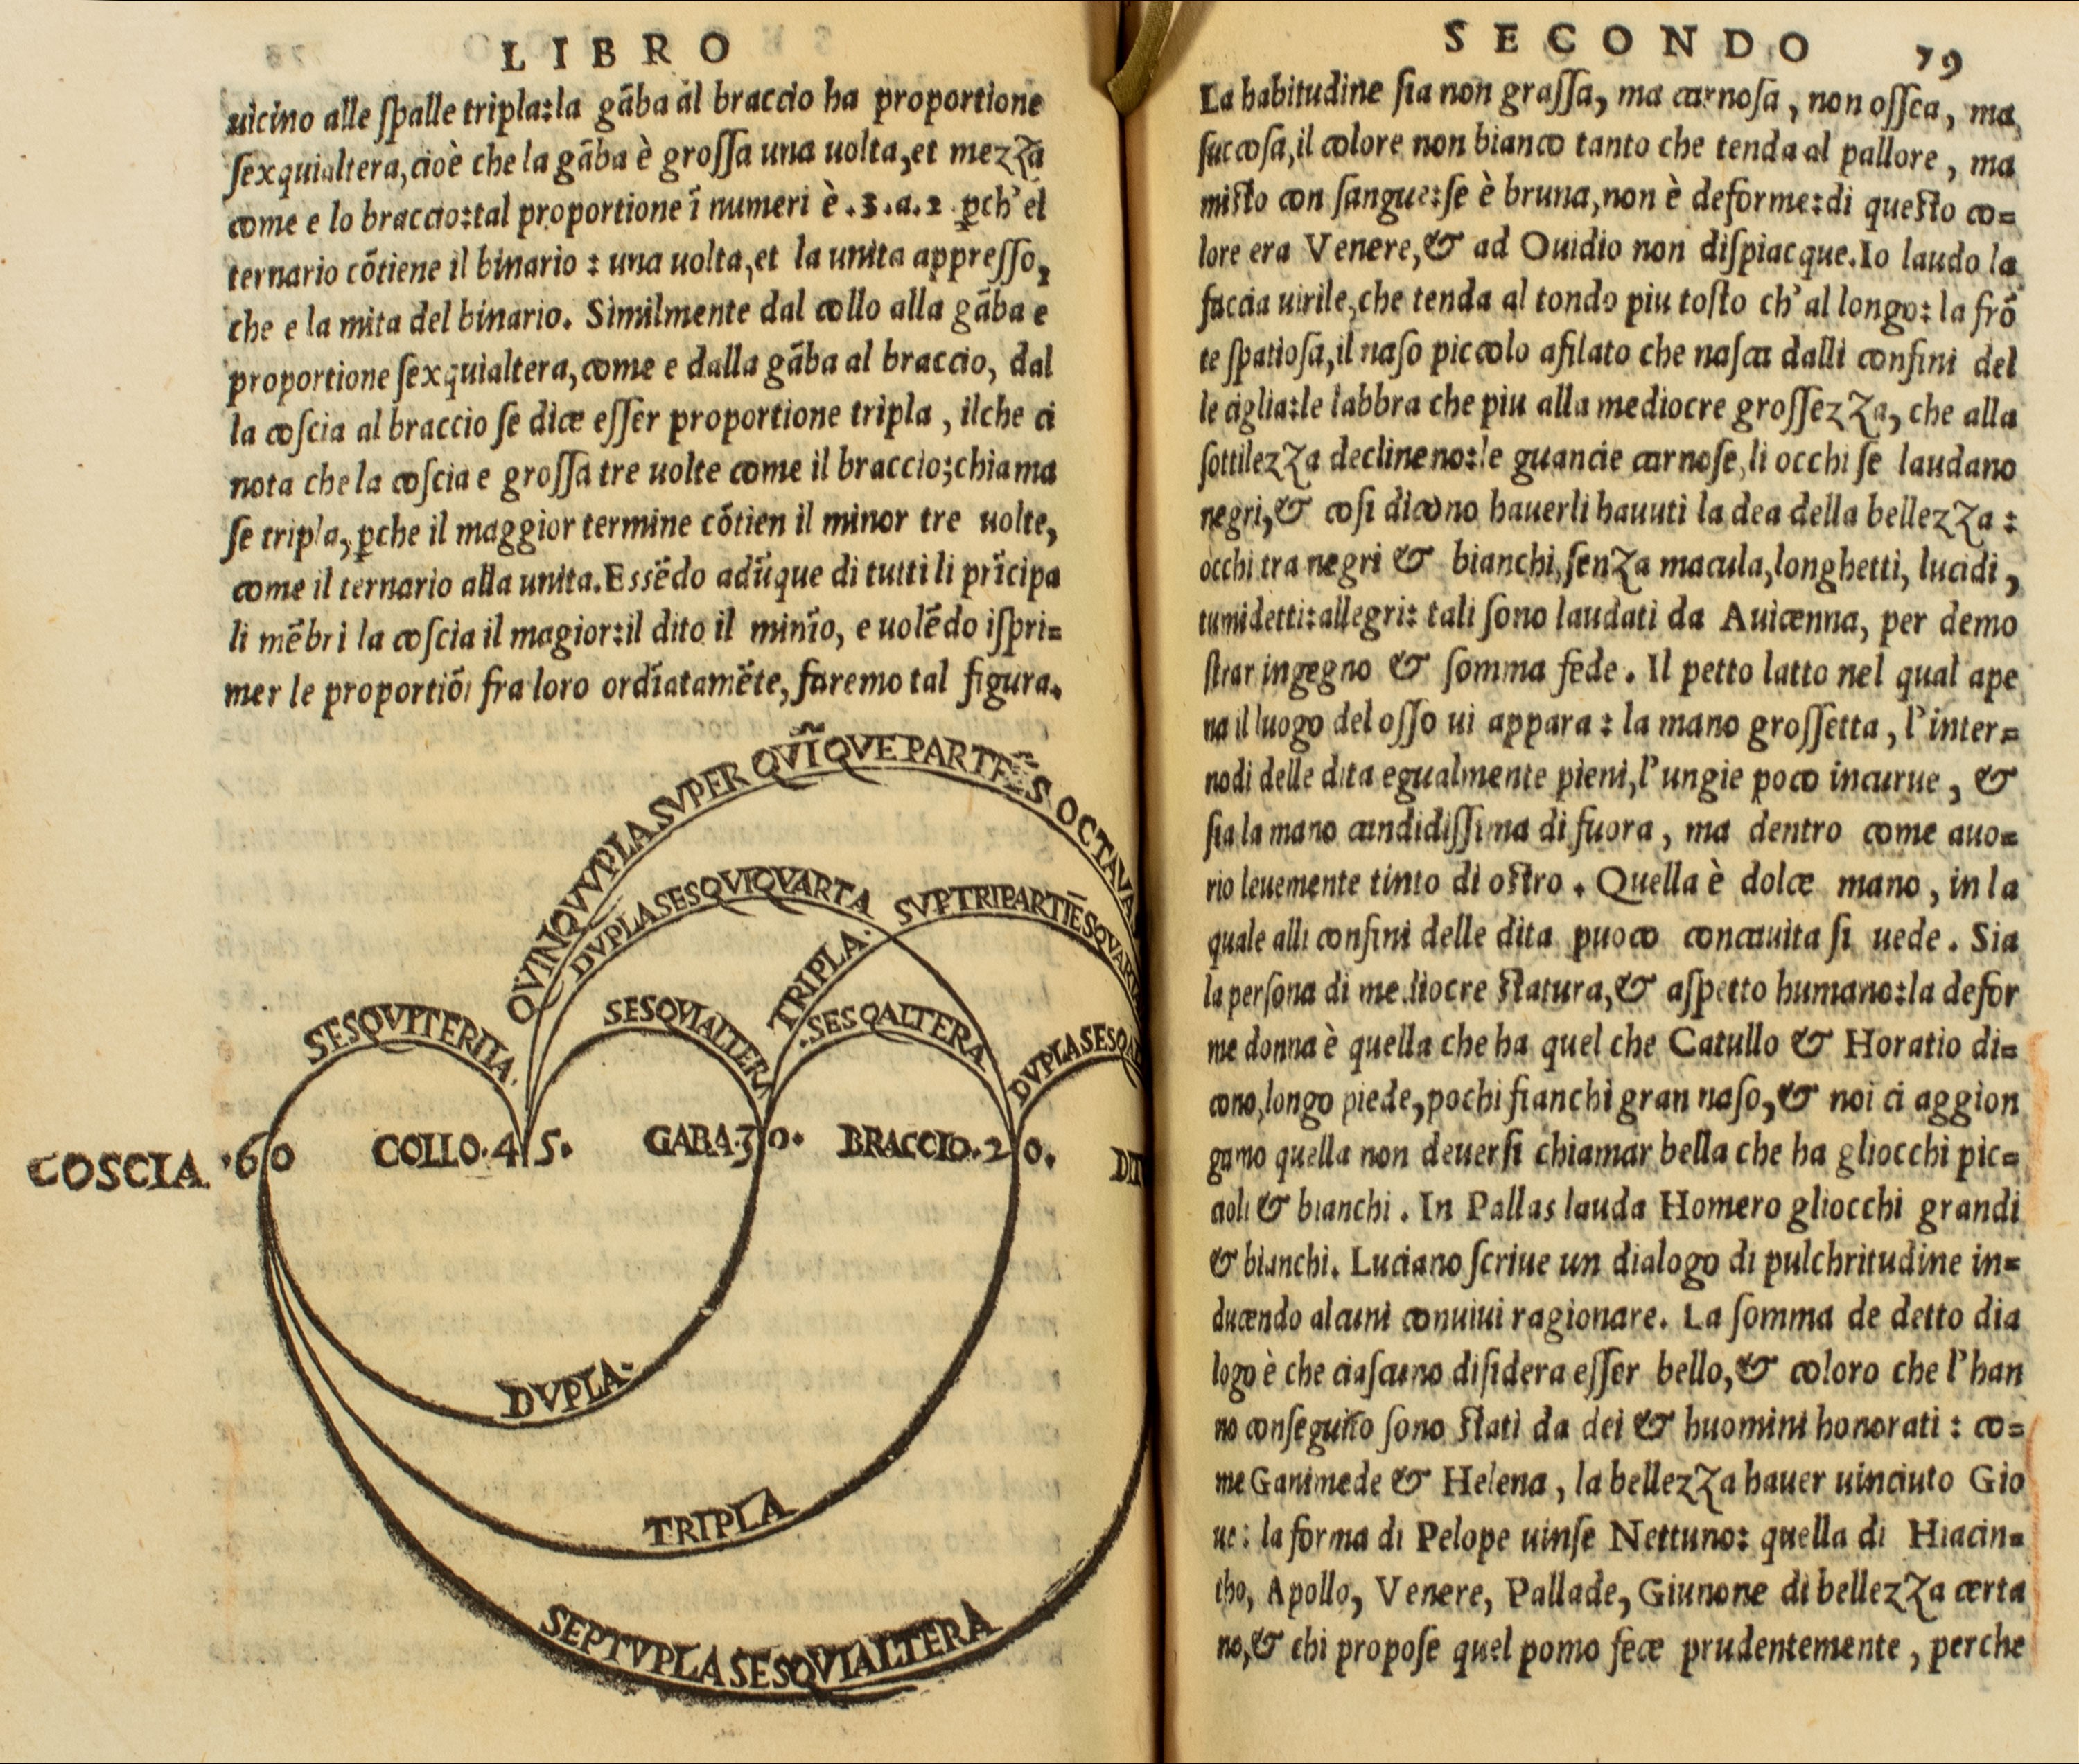 LIBRO
uicino alle ſpalle tripla:la gãba al braccio ha proportione
ſexquialtera,cioè che la gãba è groſſa una uolta,et mezza
come e lo braccio:tal proportione ĩ numeri è .3.a.2 ꝑch'el
ternario cõtiene il binario : una uolta,et la unita appreſſo,
che e la mita del binario. Similmente dal collo alla gãba e
proportione ſexquialtera,come e dalla gãba al braccio, dal
la coſcia al braccio ſe dice eſſer proportione tripla , ilche ci
nota che la coſcia e groſſa tre uolte come il braccio;chiama
ſe tripla,ꝑche il maggior termine cõtien il minor tre uolte,
come il ternario alla unita.Essẽdo adũque di tutti li prĩcipa
li mẽbri la coſcia il magior:il dito il minĩo, e uolẽdo iſpri=
mer le proportiõi fra loro ordĩatamẽte,faremo tal figura.
QVINQVVPLA SVPER QVĨQVE PARTIẼS OCTAVAS
DVPLA SESQVIQVARTA
SVPTRIPARTIẼSQVAR
TRIPLA.
SESQVITERTIA.
SESQVIALTERA
.SESQALTERA
DVPLASESQAL
COSCIA .60 COLLO.45. GABA.30. BRACCIO.20. DIT
DVPLA.
TRIPLA
SEPTVPLA SESQVIALTERA
SECONDO 79
La habitudine ſia non graſſa, ma carnoſa , non oſſea, ma
ſuccoſa,il colore non bianco tanto che tenda al pallore , ma
miſto con ſangue:ſe è bruna,non è deforme:di queſto co=
lore era Venere,& ad Ouidio non diſpiacque.Io laudo la
faccia uirile,che tenda al tondo piu toſto ch'al longo: la frõ
te ſpatioſa,il naſo piccolo afilato che naſca dalli confini del
le ciglia:le labbra che piu alla mediocre groſſezza, che alla
ſottilezza declineno:le guancie carnoſe,li occhi ſe laudano
negri,& coſi dicono hauerli hauuti la dea della bellezza :
occhi tra negri & bianchi,ſenza macula,longhetti, lucidi ,
tumidetti:allegri: tali ſono laudati da Auicenna, per demo
ſtrar ingegno & ſomma fede . Il petto latto nel qual ape
na il luogo del oſſo ui appara : la mano groſſetta , l'inter=
nodi delle dita egualmente pieni,l'ungie poco incurue , &
ſia la mano candidiſſima di fuora , ma dentro come auo=
rio leuemente tinto di oſtro . Quella è dolce mano , in la
quale alli confini delle dita puoco concauita ſi uede . Sia
la perſona di mediocre ſtatura,& aſpetto humano:la defor
me donna è quella che ha quel che Catullo & Horatio di=
cono,longo piede,pochi fianchi gran naſo,& noi ci aggion
gamo quella non deuerſi chiamar bella che ha gliocchi pic=
cioli & bianchi . In Pallas lauda Homero gliocchi grandi
& bianchi. Luciano ſcriue un dialogo di pulchritudine in=
ducendo alcuni conuiui ragionare. La ſomma de detto dia
logo è che ciaſcuno diſidera eſſer bello,& coloro che l'han
no conſeguito ſono ſtati da dei & huomini honorati : co=
me Ganimede & Helena , la bellezza hauer uinciuto Gio
ue : la forma di Pelope uinſe Nettuno: quella di Hiacin=
tho, Apollo, Venere, Pallade, Giunone di bellezza certa
no,& chi propoſe quel pomo fece prudentemente , perche